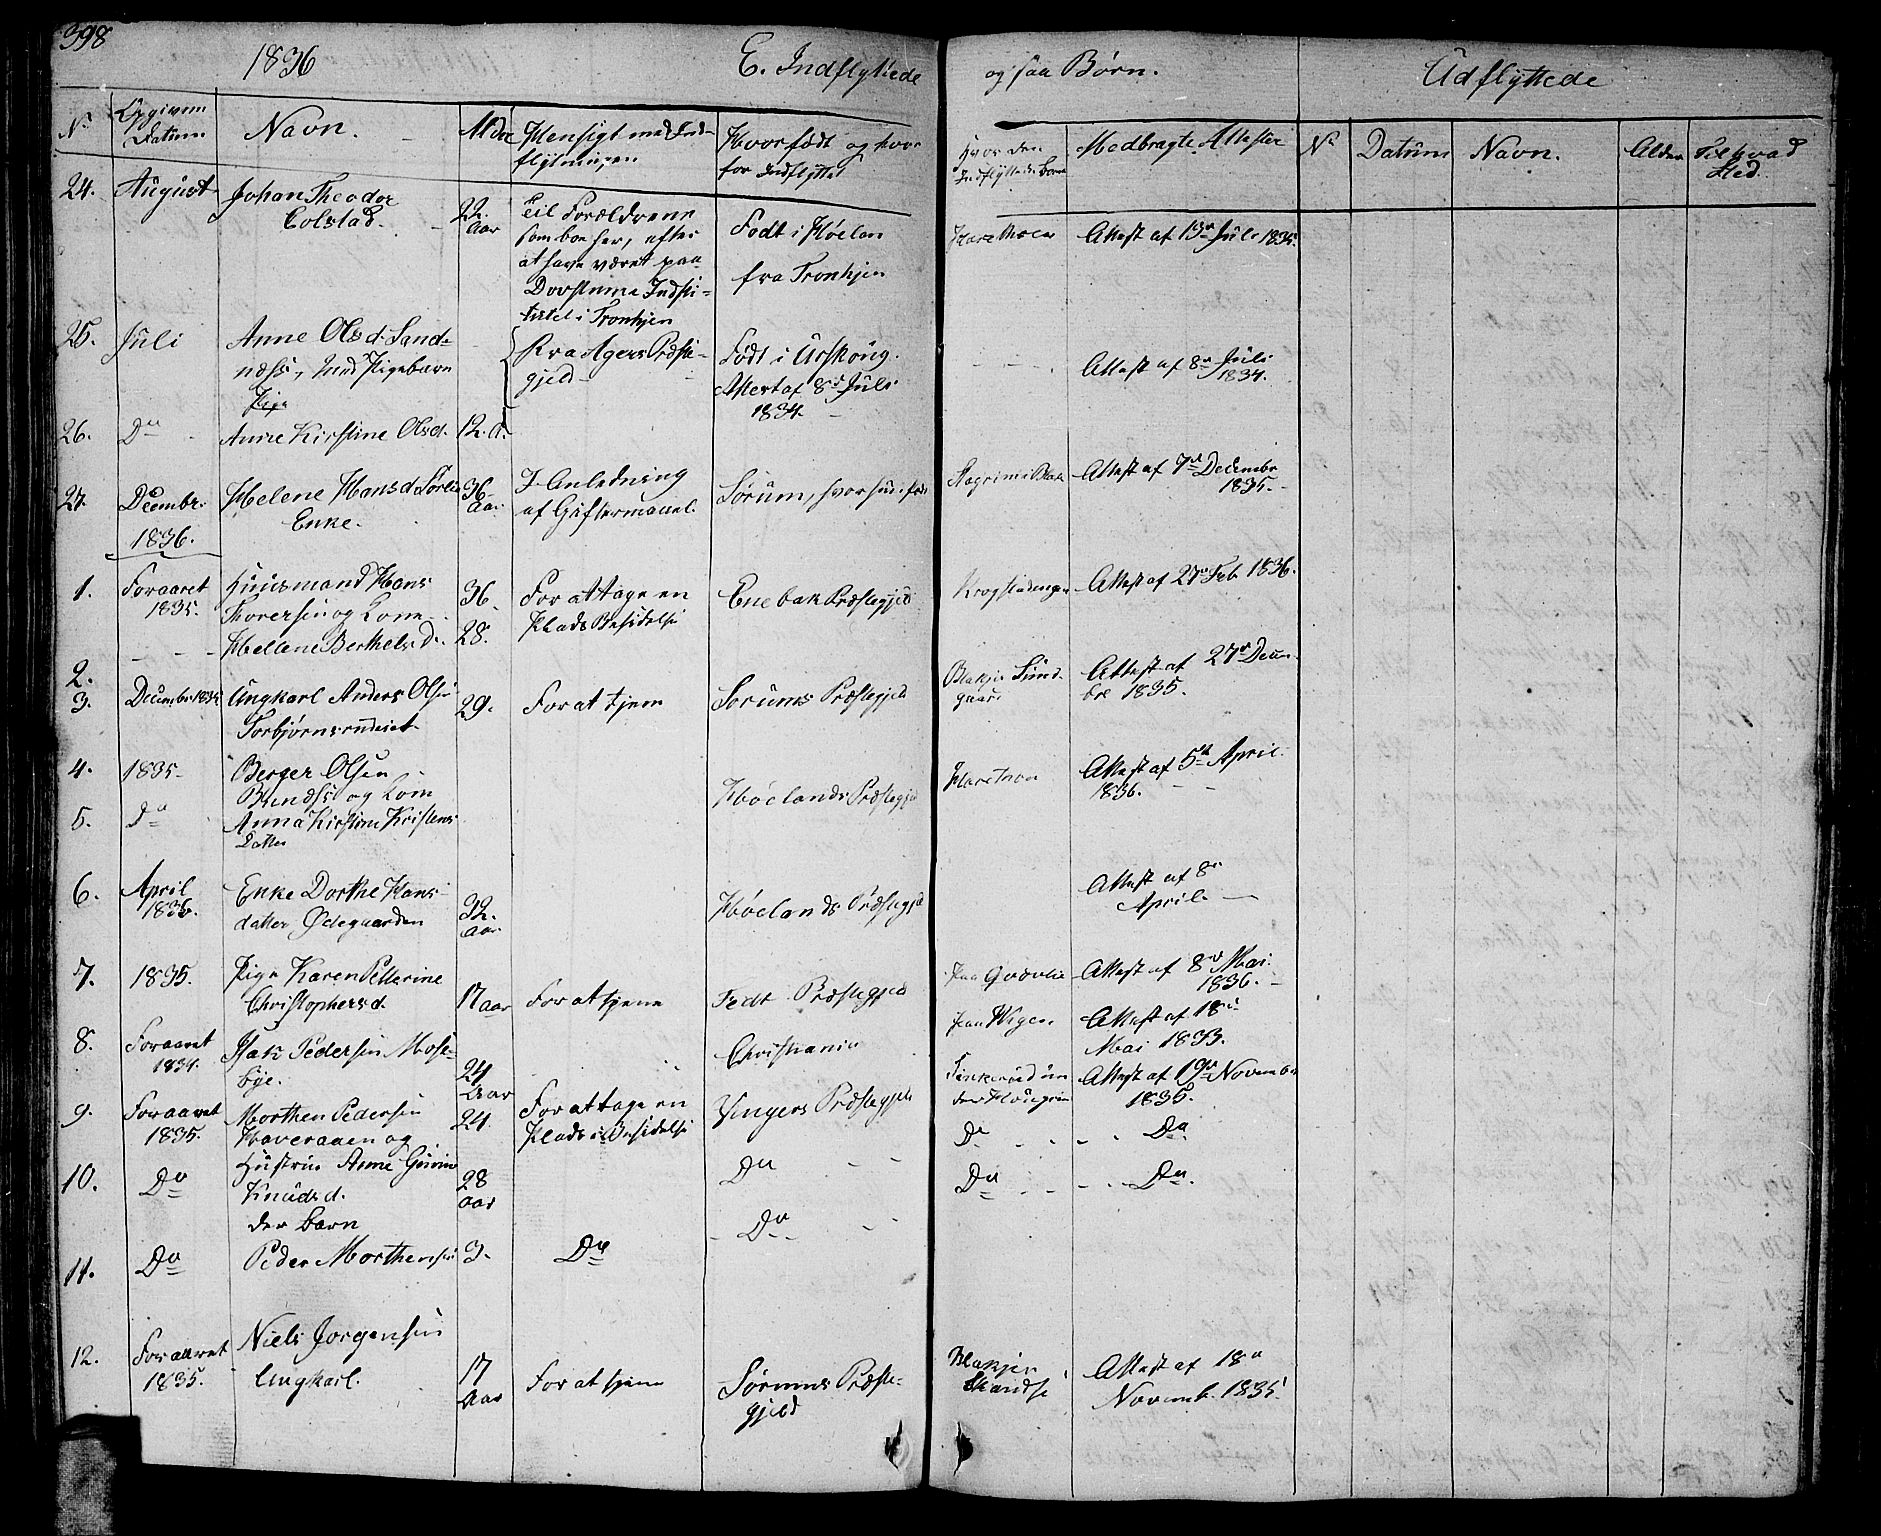 398
1836 E. Indflyttede ogsaa Børn. Udflyttede
No Opgiven Datum Navn. Alder Hensigt med Indflytningen Hvor født og hvorfra Indflyttet Hvor den Indflyttede boer Medbragte Attester No Datum Navn. Alder Til hvad Sted.
24. August Johan Theodor
Colstad. 22. Aar
Til Forældrene
som boe her, efter
at have været paa
Døvstumme Indsti-
tutet i Tronhjem
Født i Høland
fra Tronhjem
Attest af 13de Juli 1835.
25. Juli Anne Olsd. Sand-
næss, med Pigebarn
Pige
Fra Agers Præste-
gjeld
Født i Urskoug.
Attest af 8de Juli
1834.
Attest af 8de Juli
1834.
26. Do Anne Kirstine Olsd. 12.
27. Decembr. Helene Hansd. Sørlie
Enke. 36 Aar
I Anledning
af Giftermaal.
Sørum, hvor hun
Attest af 7de Decembr
1835.
1836.
1. Foraaret
1835.
Huusmand Hans
Thoversen og Kone
36.
For at tage en
Plads i Besidelse
Enebak Præstegjeld
Attest af 27de Feb. 1836.
Hellene Berthelsd. 28.
2.
3. December 1835 Ungkarl Anders Olsen
Torbjørnsrudeiet 29. For at tjene Sørums Præstegjeld
Attest af 27de Decem-
bre 1835.
4. 1835. Berger Olsen
og Kone
Høelands Præstegjeld
Attest af 5te April
1836.
5. Do Anna Kirstine Kristens
Datter
6. April
1836.
Enke Dorthe Hans
datter Ødegaarden 32.
Aar
Høelands Præstegjeld
Attest af 8de
April
7. 1835. Pige Karen Petterine
Christophersd. 17 aar For at tjene Fedt Præstegjeld
Attest af 8de Mai
1836.
8. Foraaret
1834.
Isak Pedersen Mose-
bye. 24
Aar
Christiania
Attest af 18de
Mai 1833.
9. Foraaret
1835.
Morthen Pedersen
Haveraaen og 24.
For at tage en
Plads i Besidelse
Vingers Præstegjeld
Attest af 19de Novemb
1835.
Do Do
10. Do Hustrue Anne
Knudsd. 28
aar
Do Do Do.
der Barn
11. Do Peder Morthensen 3. Do Do
12. Foraaret
1835.
Niels Jorgensen
Ungkarl. 17
Aar
For at tjene
Sørums Præste-
gjeld
Blakjer
Skandse
Attest af 18de
Novemb. 1835.